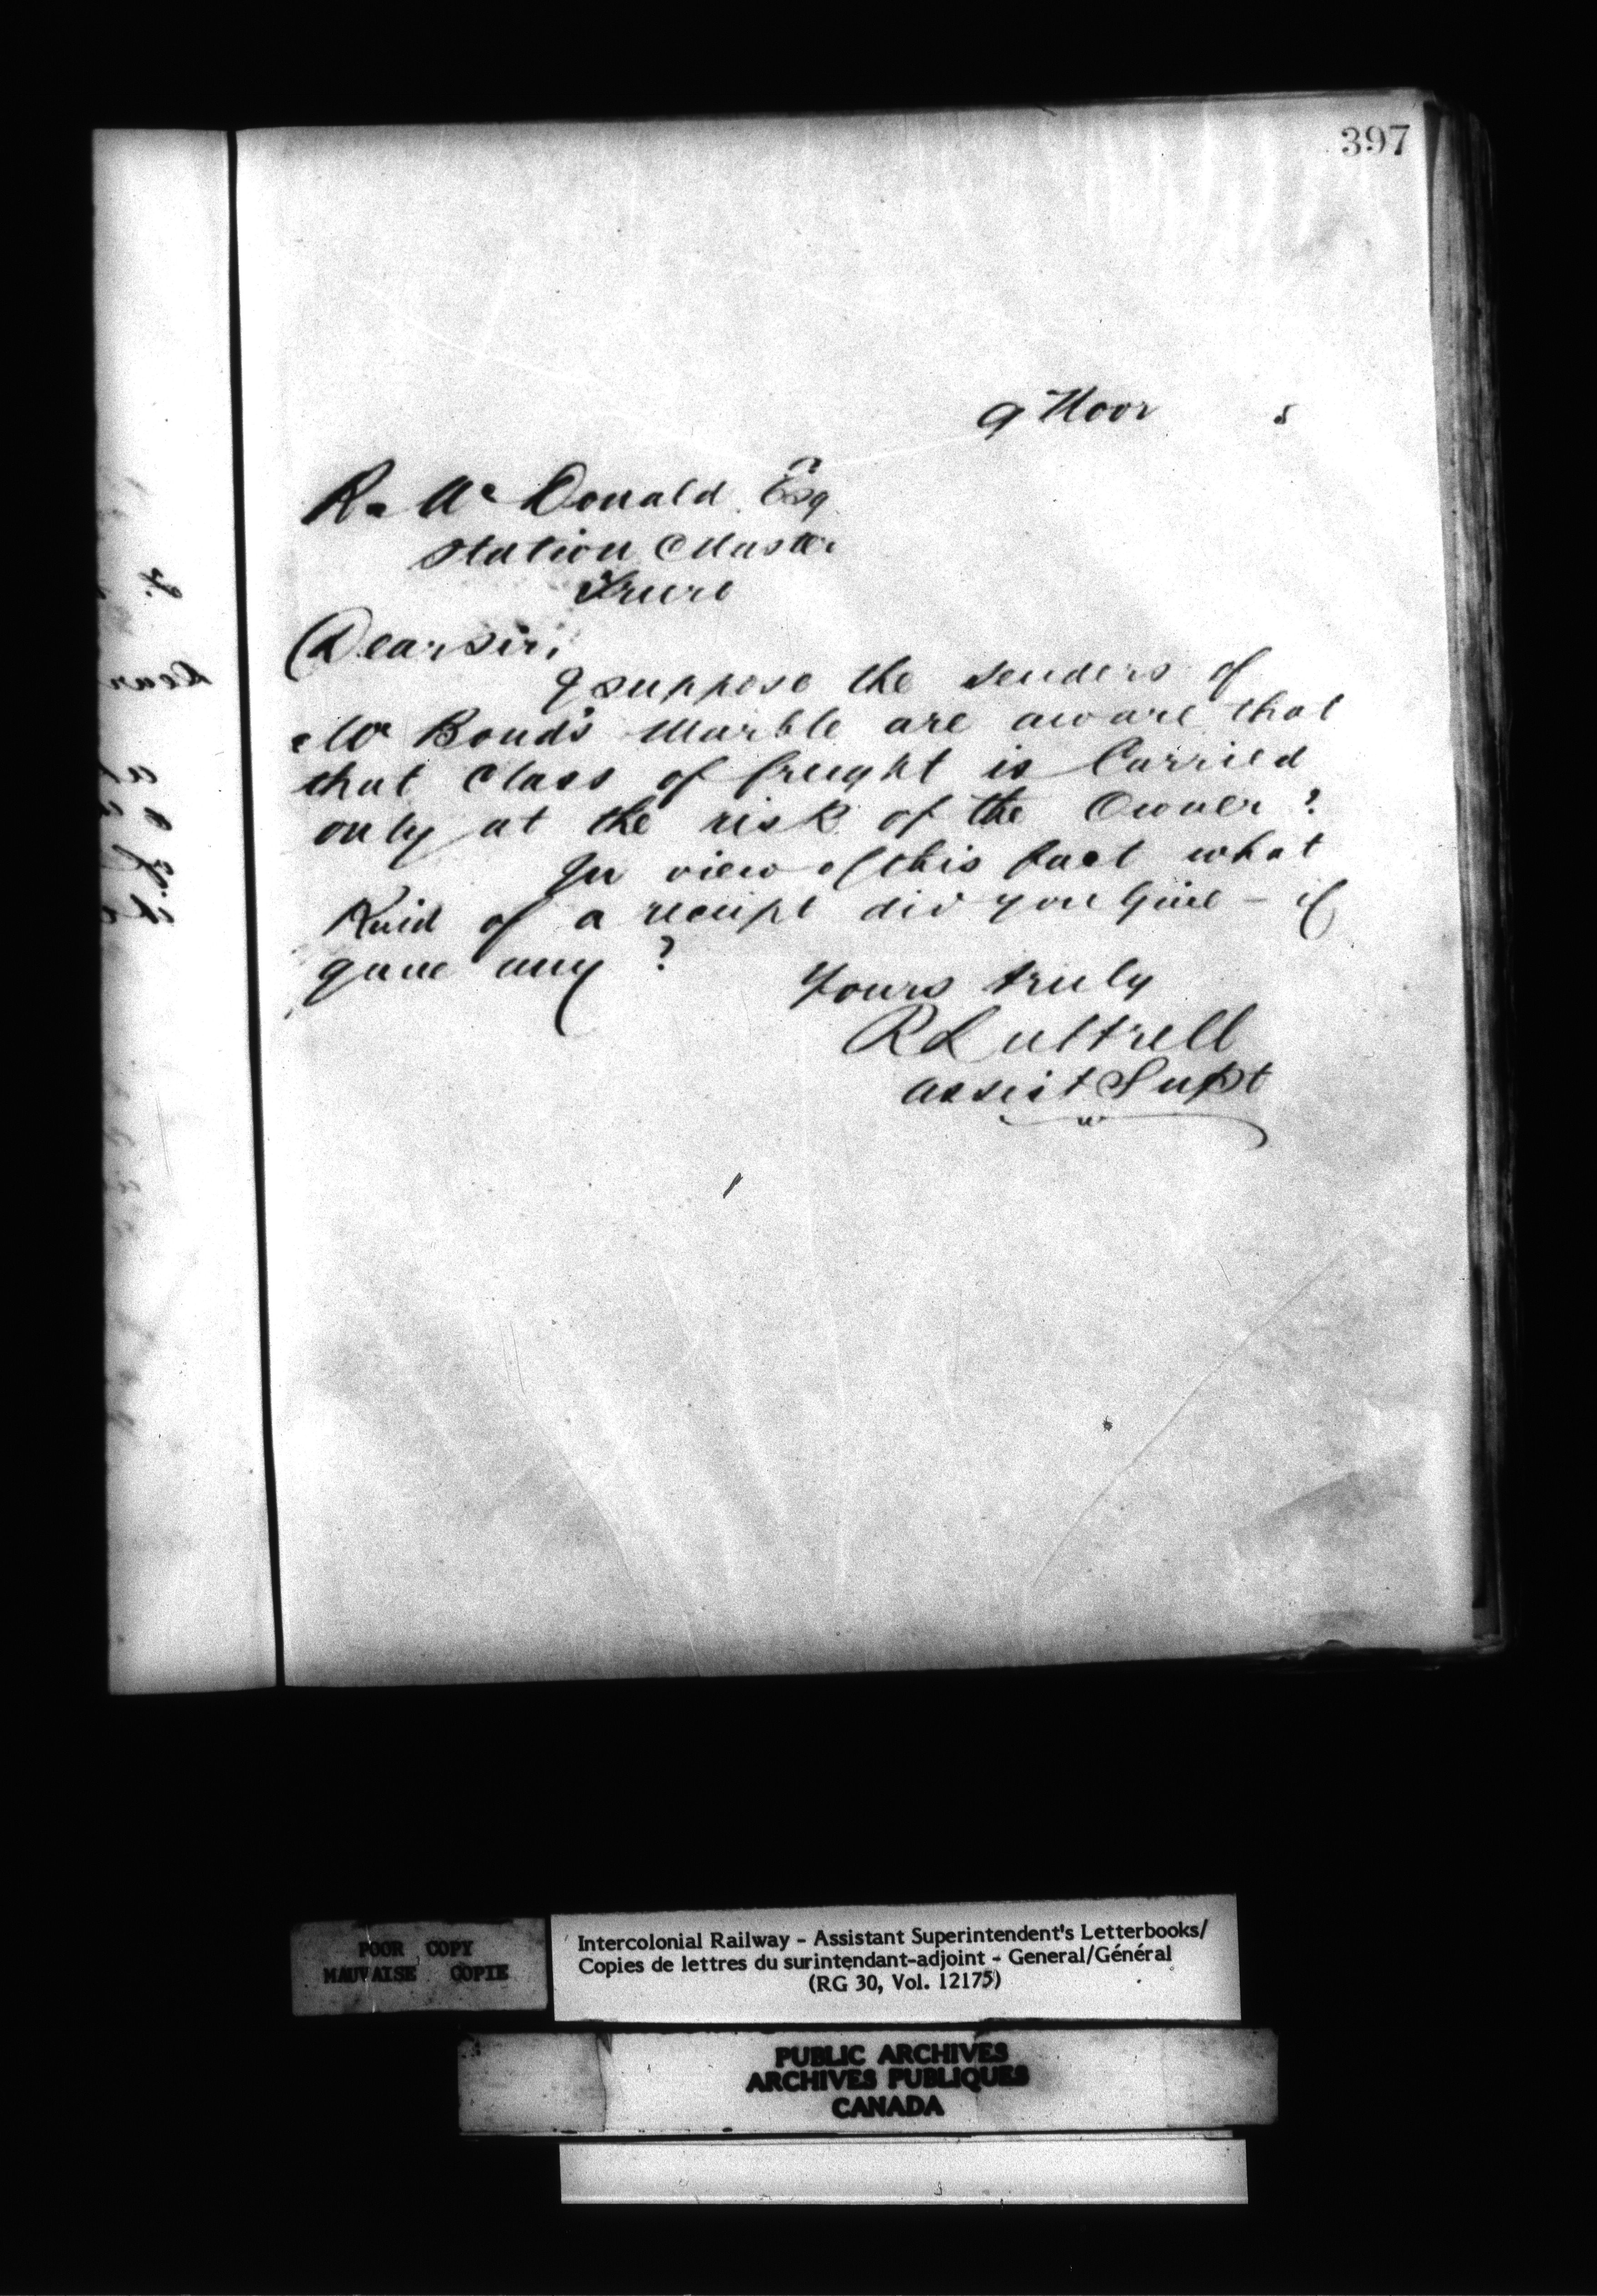 397
9 Novr 5
R. McDonald Esq
Station Master
Truro
Dear Sir,
I suppose the senders of
Mr Bond's Marble are aware that
that Class of freight is Carried
only at the risk of the Owner?
In view of this fact what
Kind of a receipt did you Give - if
gave any?
Yours truly
R Luttrell
Assist Supt
POOR COPY
MAUVAISE COPIE
Intercolonial Railway - Assistant Superintendent's Letterbooks/
Copies de lettres du surintendant-adjoint - General/Général
(RG 30, Vol. 12175)
PUBLIC ARCHIVES
ARCHIVES PUBLIQUES
CANADA